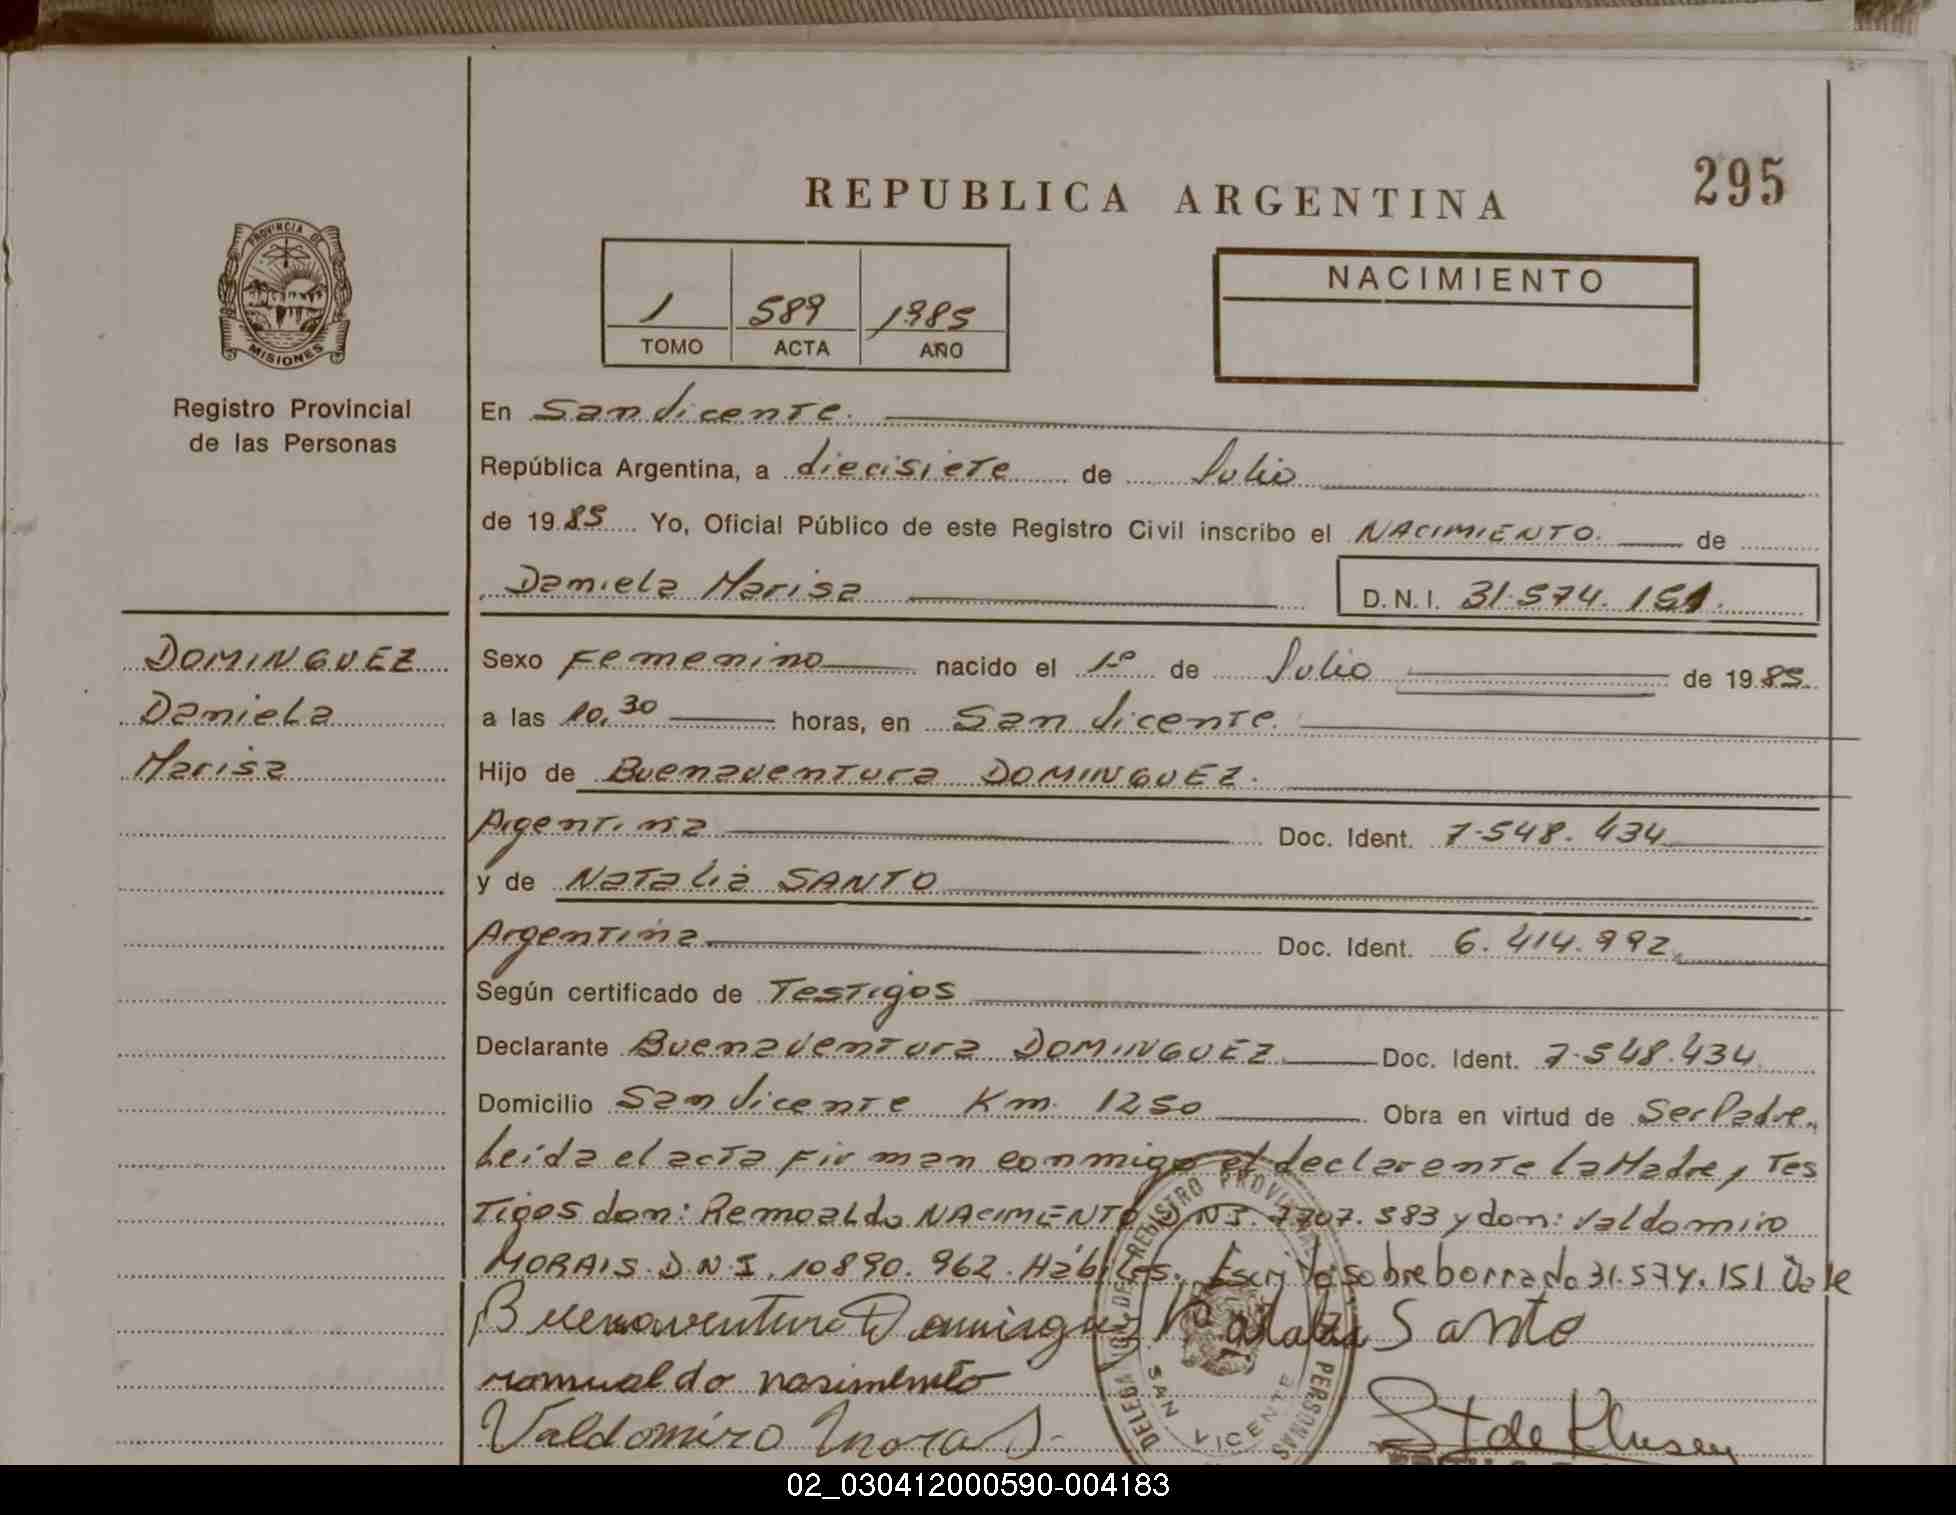 REPUBLICA ARGENTINA
295
PROVINCIA DE
MISIONES
Registro Provincial
de las Personas
1 589 1985
TOMO ACTA AÑO
NACIMIENTO
En San Vicente.
República Argentina, a diecisiete de Julio
de 1985 Yo, Oficial Público de este Registro Civil inscribo el NACIMIENTO. de
Daniela Marisa D.N.I. 31.574.151.
DOMINGUEZ
Daniela
Marisa
Sexo Femenino nacido el 1º de Julio de 1985.
a las 10,30 horas, en San Vicente.
Hijo de Buenaventura DOMINGUEZ.
Argentina Doc. Ident. 7.548.434
y de Natalia SANTO
Argentina Doc. Ident. 6.414.992
Según certificado de Testigos
Declarante Buenaventura DOMINGUEZ Doc. Ident. 7.548.434
Domicilio San Vicente Km. 1250 Obra en virtud de Ser Padre.
Leida el acta firman conmigo el declarente la Madre, Tes
Tigos don: Remoaldo NACIMENTO D.N.I. 7.707.583 y don: Valdomiro
MORAIS D.N.I. 10.890.962. Hábiles. Escrito sobre borrado 31.574.151 Vale
Buenaventura Dominguez Natalia Santo
romualdo nasimento
Valdomiro Morais
REGISTRO PROVINCIAL
PERSONAS
SAN VICENTE
St de Klusen
02_030412000590-004183